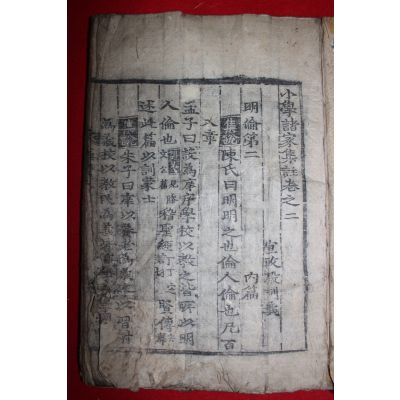 小學諸家集註卷之二
宣政殿訓義
明倫第二
內篇
集說陳氏曰明明之也倫人倫也凡百
八章
孟子曰設爲庠序學校以敎之皆所以明
人倫也稽聖經訂賢傳
述此篇以訓蒙士
集說朱子曰庠以養老爲義校以
敎民爲義